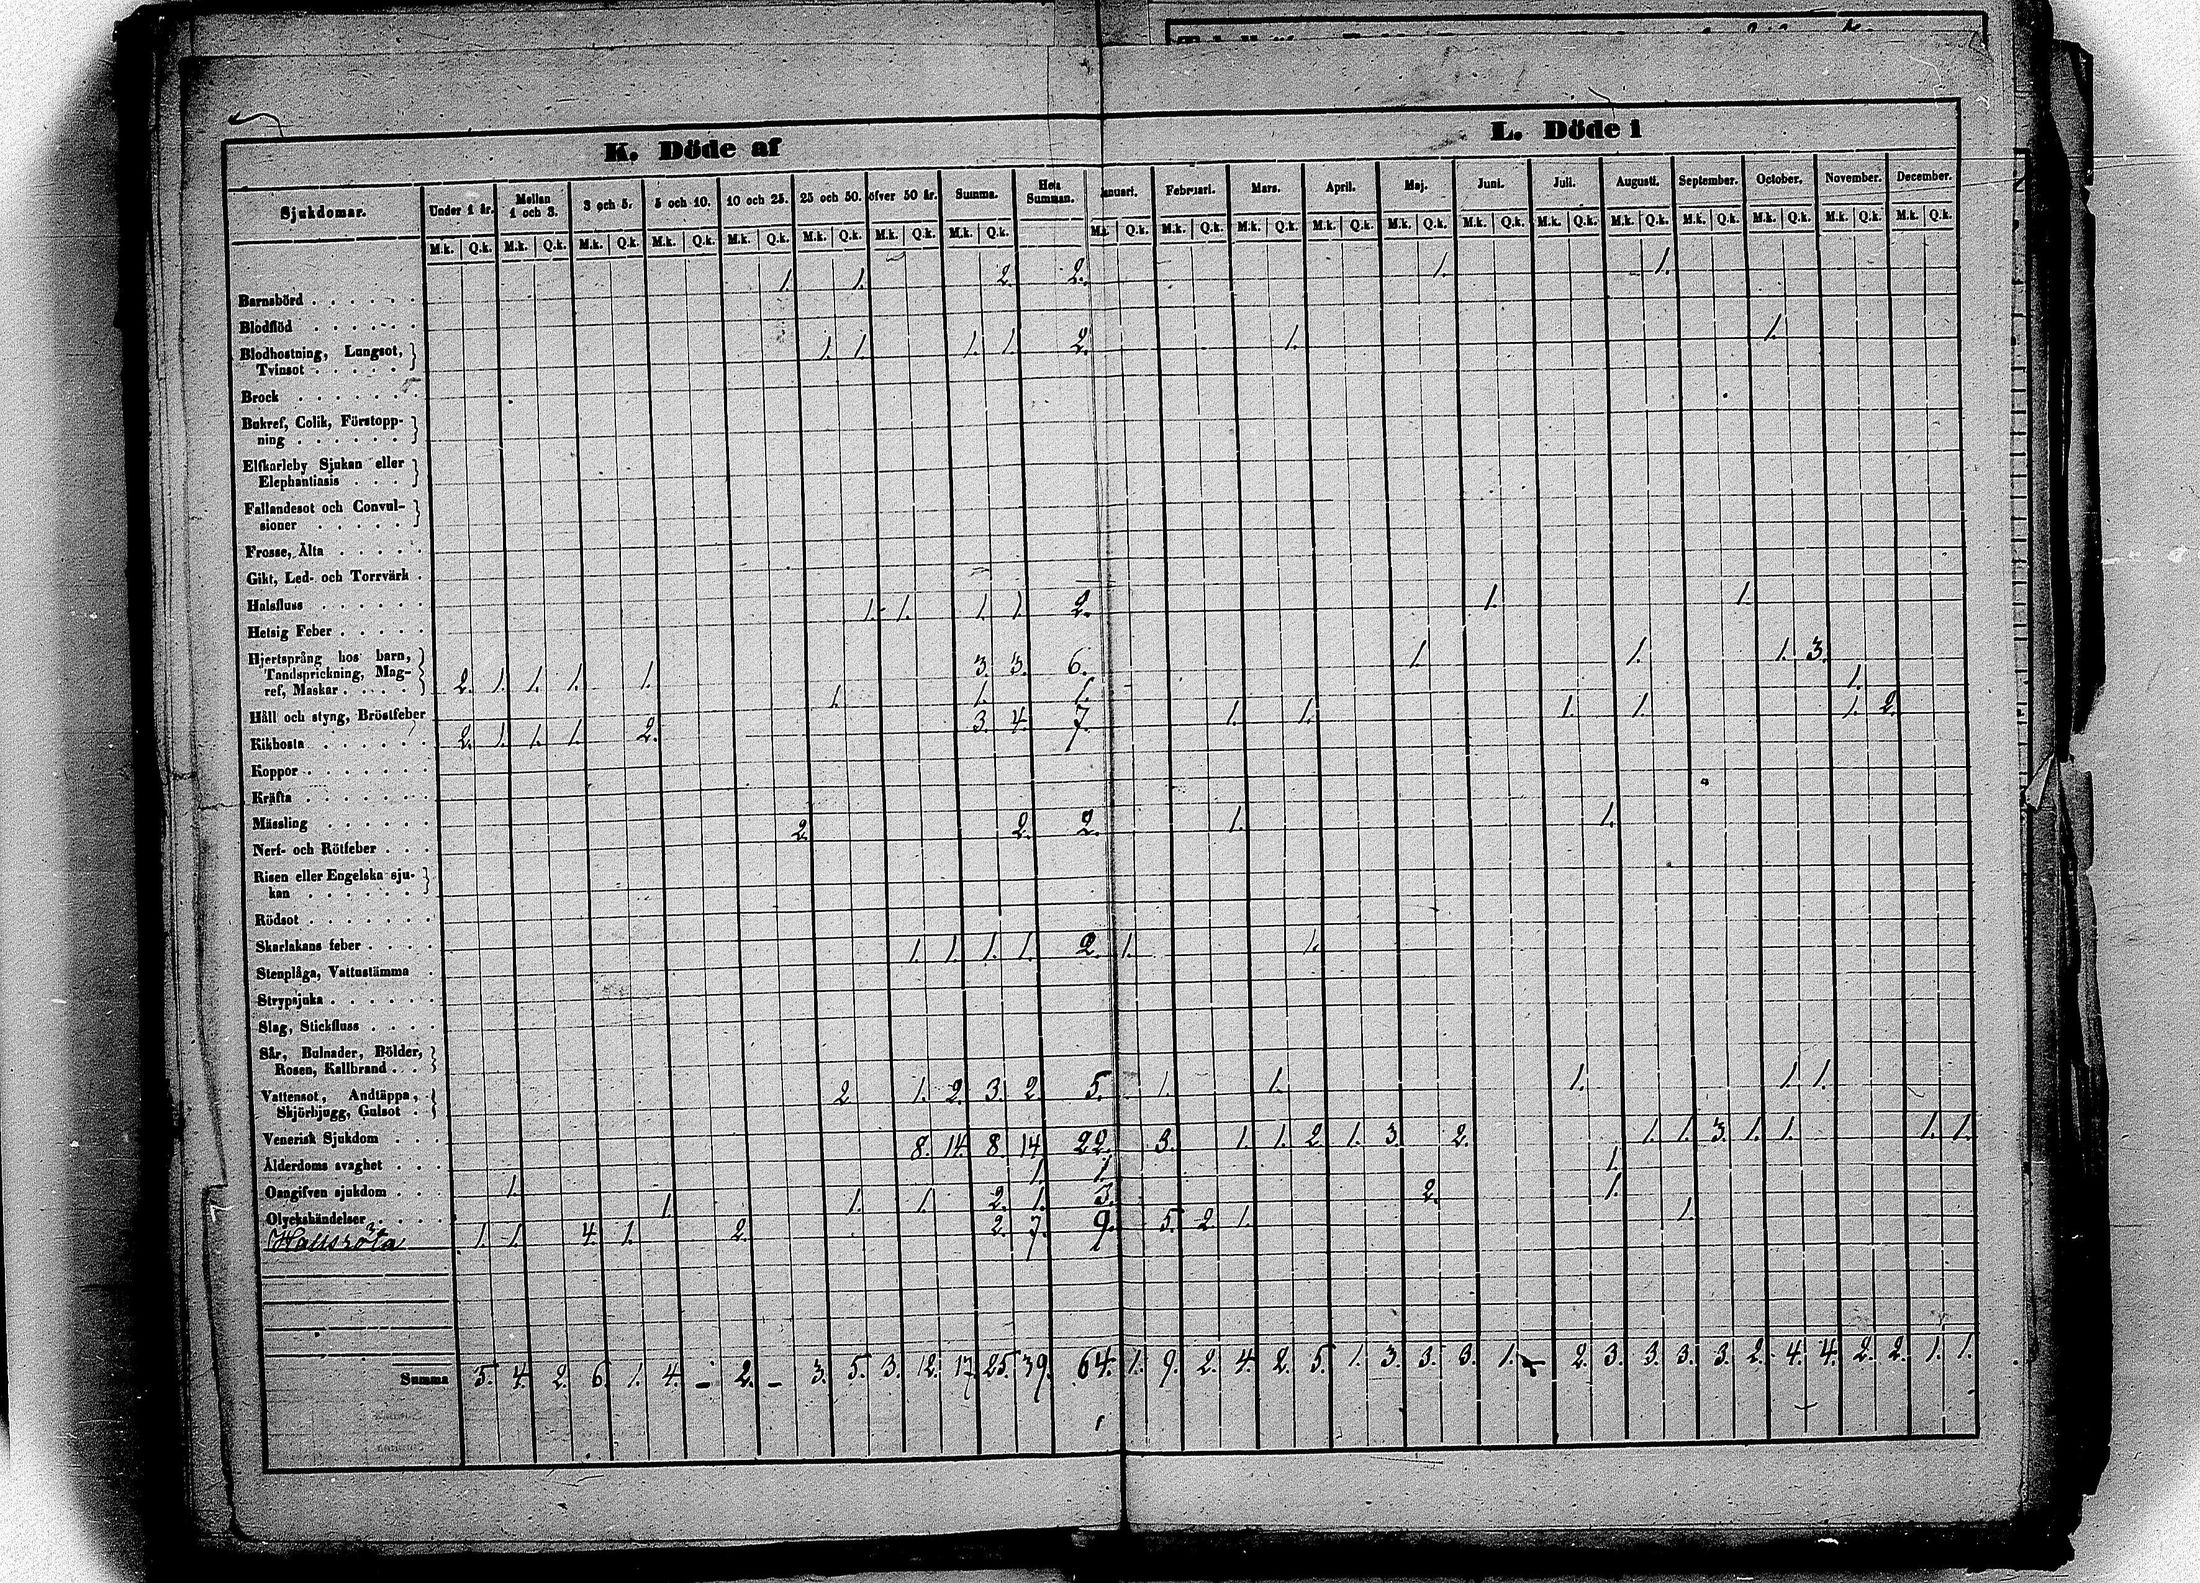 K. Döde af
L. Döde i
Sjukdomar. Under 1 år. Mellan 1 och 3. 3 och 5. 5 och 10. 10 och 25. 25 och 50. öfver 50 år. Summa. Hela Summan. Januari. Februari. Mars. April. Maj. Juni. Juli. Augusti. September. October. November. December.
M.k. Q.k. M.k. Q.k. M.k. Q.k. M.k. Q.k. M.k. Q.k. M.k. Q.k. M.k. Q.k. M.k. Q.k. M.k. Q.k. M.k. Q.k. M.k. Q.k. M.k. Q.k. M.k. Q.k. M.k. Q.k. M.k. Q.k. M.k. Q.k. M.k. Q.k. M.k. Q.k. M.k. Q.k. M.k. Q.k.
Barnsbörd . . . . . . 1. 1. 2. 2. 1. 1.
Blödflöd . . . . . .
Blodhostning, Lungsot,
Tvinsot . . . . . 1. 1. 1. 1. 2. 1. 1.
Brock . . . . . . .
Bukref, Colik, Förstopp-
ning . . . . . .
Elfkarleby Sjukan eller
Elephantiasis . . .
Fallandesot och Convul-
sioner . . . . .
Frosse, Älta . . . . .
Gikt, Led- och Torrvärk .
Halsfluss . . . . . . 1. 1. 1. 1. 2. 1. 1.
Hetsig Feber . . . . .
Hjertsprång hos barn,
Tandsprickning, Mag-
ref, Maskar . . . . . 2. 1. 1. 1. 1. 3. 3. 6. 1. 1. 1. 3.
Håll och styng, Bröstfeber 1. 1. 1. 1.
Kikhosta . . . . . . 2. 1. 1. 1. 2. 3. 4. 7. 1. 1. 1. 1. 1. 2.
Koppor . . . . . . .
Kräfta . . . . . . .
Mässling . . . . . .
Nerf- och Rötfeber . . . 2. 2. 2. 1. 1.
Risen eller Engelska sju-
kan . . . . . .
Rödsot . . . . . . .
Skarlakans feber . . . . 1. 1. 1. 1. 2. 1. 1.
Stenplåga, Vattustämma .
Strypsjuka . . . . . .
Slag, Stickfluss . . . .
Sår, Bulnader, Bölder,
Rosen, Kallbrand . . .
Vattensot, Andtäppa,
Skjörbjugg, Gulsot . 2 1. 2. 3. 2. 5. 1. 1. 1. 1. 1.
Venerisk Sjukdom . . .
Ålderdoms svaghet . . . 8. 14. 8. 14. 22. 3. 1. 1. 2. 1. 3. 2. 1. 1. 3. 1. 1. 1. 1.
Oangifven sjukdom . . . 1. 1. 1. 1.
Olyckshändelser . . . . 1. 1. 1. 2. 1. 3. 2. 1.
Halsröta 1. 1. 4. 1. 2. 2. 7. 9. 5. 2. 1. 1.
Summa 5. 4. 2. 6. 1. 4. - 2. - 3. 5. 3. 12. 17. 25. 39. 64. 1. 9. 2. 4. 2. 5. 1. 3. 3. 3. 1. - 2. 3. 3. 3. 3. 2. 4. 4. 2. 2. 1. 1.